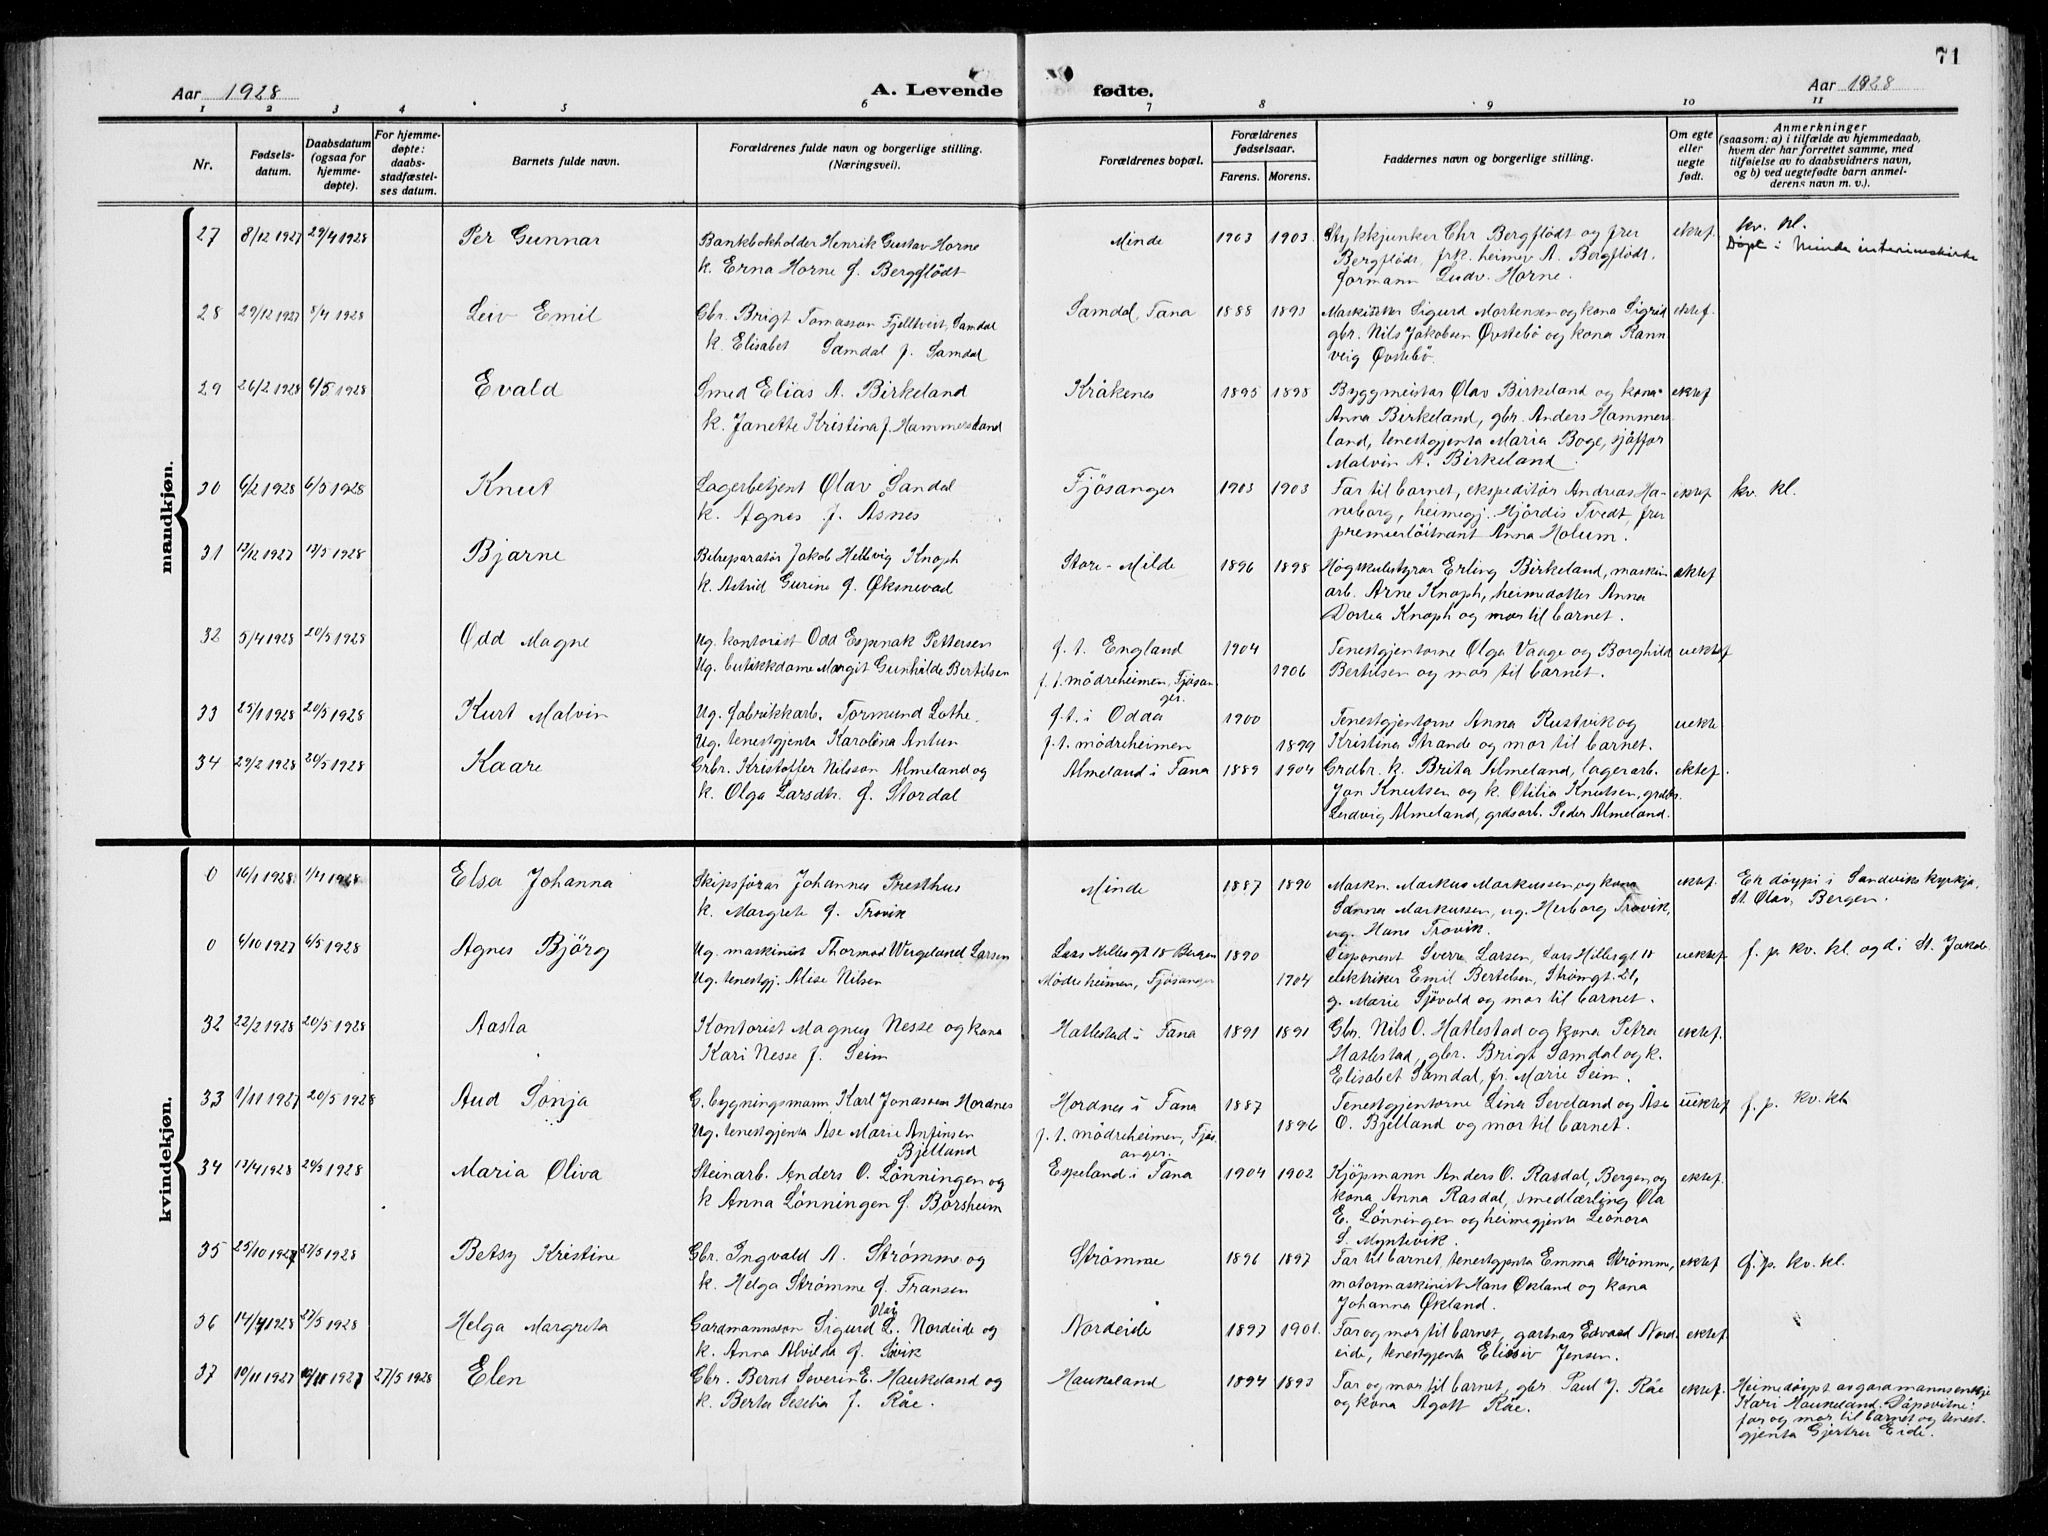 71
Aar 1928 A. Levende fødte. Aar 1928
1 2 3 4 5 6 7 8 9 10 11
Nr.
Fødsels-
datum.
Daabsdatum
(ogsaa for
hjemme-
døpte).
For hjemme-
døpte:
daabs-
stadfæstel-
ses datum.
Barnets fulde navn.
Forældrenes fulde navn og borgerlige stilling.
(Næringsvei).
Forældrenes bopæl.
Forældrenes
fødselsaar.
Farens. Morens.
Faddernes navn og borgerlige stilling.
Om egte
eller
uegte
født.
Anmerkninger
(saasom: a) i tilfælde av hjemmedaab,
hvem der har forrettet samme, med
tilføielse av to daabsvidners navn,
og b) ved uegtefødte barn anmel-
derens navn m. v.).
mandkjøn.
27 8/12 1927 29/4 1928 Per Gunnar
Bankbokholder Henrik Gustav Horne
k. Erna Horne f. Bergflödt
Minde 1903 1903
Stykkjunker Chr Bergflödt og frer
Bergflödt, frk. heimev A. Bergflödt.
formann Ludv. Horne.
ektef. kv. kl.
Döpt i Minde interimskirke
28 29/12 1927 /4 1928 Leiv Emil
Gbr. Brigt Tomasson Fjelltveit, Samdal
k. Elisabet Samdal f. Samdal
Samdal, Fana 1888 1893
Sigurd Mortensen og kona Sigrid
gbr. Nils Jakobsen Øvstebö og kona Rann
veig Øvstebö.
ektef.
29 26/2 1928 6/5 1928 Evald
Smed Elias A. Birkeland
k. Janette Kristina f. Hammersland
Kråkenes 1895 1898
Byggmeistar Ølav Birkeland og kona
Anna Birkeland, gbr. Anders Hammers
land, tenestgjenta Maria Boge, sjåffør
Malvin A. Birkeland.
ektef
30 6/2 1928 6/5 1928 Knut
Lagerbetjent Ølav Sandal
k. Agnes f. Asnes
Fjösanger 1903 1903
Far til barnet, ekspeditör Andreas Ha-
neborg, heimegj. Hjördis Tvedt, frer
premierlöitnant Anna Holum.
ektef kv. kl.
31 13/12 1927 13/5 1928 Bjarne
Bilreparatör Jakob Hellvig Knoph
k. Astrid Gurine f. Øksnevad
Store-Milde 1896 1898
Högskulestyrar Erling Birkeland, maskin
arb. Arne Knoph, heimedotter Anna
Dortea Knoph og mor til barnet.
ektef
32 5/4 1928 20/5 1928 Odd Magne
Ug. kontorist Odd Espenak Pettersen
Ug. butikkdame Margit Gunhilde Bertilsen
f. t. England 1904
f. t. mödreheimen, Fjösan
ger. 1906
Tenestgjentorne Olga Vaage og Borghild
Bertilsen og mor til barnet.
uektef
33 25/1 1928 20/5 1928 Kurt Malvin
Ug. fabrikkarb. Tormund Lothe.
Ug. tenestgjenta Karolina Antun
f. t. i Odda 1900
f. t. mödreheimen 1899
Tenestgjentorne Anna Rustvik og
Kristina Strande og mor til barnet.
uekte.
34 29/2 1928 20/5 1928 Kaare
Grbr. Kristoffer Nilsson Almeland og
k. Olga Larsdtr. f. Stordal
Almeland i Fana 1889 1904
Grdbr. k. Brita Almeland, lagerarb.
Jon Knutsen og k. Otilia Knutsen, grdbr.
Ludvig Almeland, grdsarb. Peder Almeland.
ektef.
kvindekjøn.
0 16/1 1928 1/4 1928 Elsa Johanna
Skipsförar Johannes Presthus
k. Margrete f. Trovik
Minde 1887 1890
Maskn. Markus Markussen og kona
Sanna Markussen, ug. Herborg Trovik,
ug. Hans Trovik.
ektef. Er döypt i Sandviks kyrkja,
St. Olav, Bergen.
0 6/10 1927 6/5 1928 Agnes Björg
Ug. maskinist Thormod Wergeland Larsen
Ug. tenestgj. Alise Nilsen
Lars Hillesgt 18 Bergen 1890
Mödreheimen, Fjösanger 1904
Disponent Sverre Larsen, Lars Hillesgt 18
elektriker Emil Bertelsen, Strömgt. 21,
g. Marie Sjövold og mor til barnet.
uektef f. p. kv. kl og d i St. Jakob
32 22/2 1928 20/5 1928 Aasta
Kontorist Magnus Nesse og kona
Kari Nesse f. Seim
Hatlestad i Fana 1891 1891
Gbr. Nils O. Hatlestad og kona Petra
Hatlestad, gbr. Brigt Samdal og k.
Elisabet Samdal, fr. Marie Seim.
ektef.
33 1/11 1927 20/5 1928 Aud Sonja
G. bygningsmann Karl Jonassen Hordnes
Ug. tenestgjenta Åse Marie Anfinsen
Bjelland
Hordnes i Fana 1887
f. t. mödreheimen, Fjös
anger. 1896
Tenestgjentorne Lina Seveland og Åse
O. Bjelland og mor til barnet.
uektef f. p. kv. kl.
34 13/4 1928 20/5 1928 Maria Oliva
Steinarb. Anders O. Lönningen og
k Anna Lönningen f. Börsheim
Espeland i Fana 1904 1902
Kjöpmann Anders O. Rasdal, Bergen og
kona Anna Rasdal, smedlærling Ola
E. Lönningen og heimegjenta Leonora
S. Myntevik.
ektef.
35 25/10 1927 27/5 1928 Betsy Kristine
Gbr. Ingvald A. Strömme og
k. Helga Strömme f. Fransen
Strömme 1896 1897
Far til barnet, tenestgjenta Emma Strömme,
motormaskinist Hans Økland og kona
Johanna Økland.
ektef f. p. kv. kl.
36 14/4 1928 27/5 1928 Helga Margreta
Olav
Gardmannsson Sigurd L. Nordeide og
k. Anna Alvilda f. Søvik
Nordeide 1897 1901.
Far og mor til barnet, gartnar Edvard Nord
eide, tenestgjenta Elisiv Jensen.
ektef
37 19/11 1927 19/11 1927 27/5 1928 Elen
Gbr. Bernt Severin E. Haukeland og
k. Berta Seselia f. Råe.
Haukeland 1894 1893
Far og mor til barnet, gbr Paul J. Råe
og kona Agott Råe.
ektef. Heimedöypt av gardmannsenkje
Kari Haukeland. Dåpsvitne:
far og mor til barnet og tenest-
gjenta Gjertru Eide.